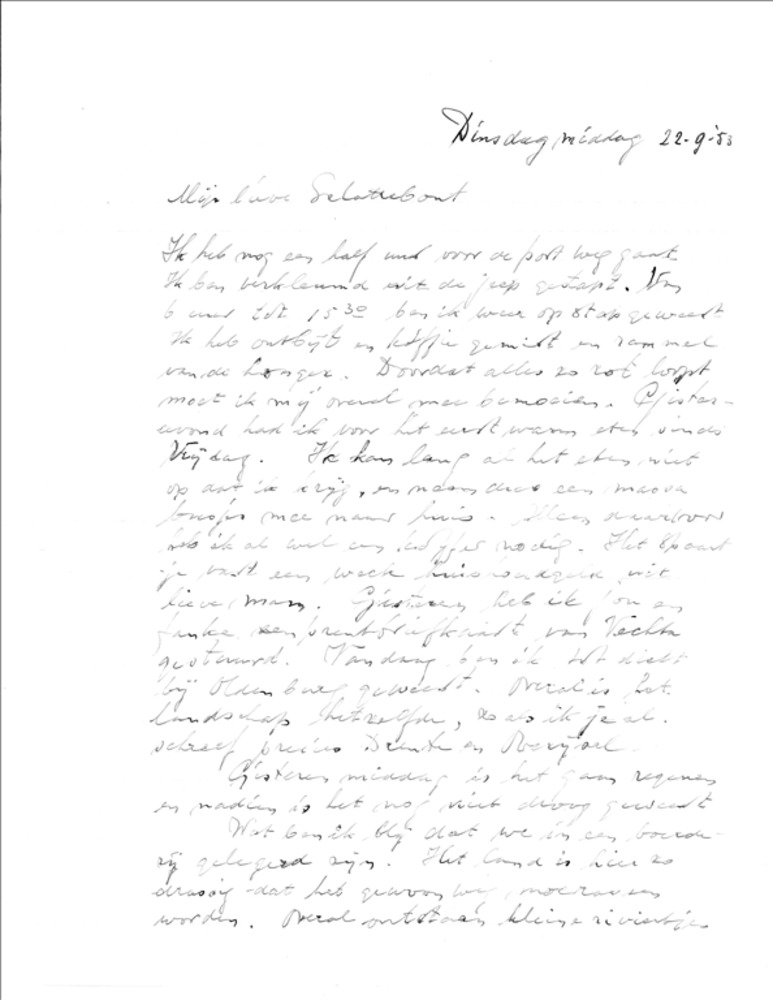 Dinsdag middag 22-9-'53
Mijn lieve Schattebout
Ik heb nog een half uur voor de post weg gaat.
Ik ben verkleumd uit de jeep gestapt. Van
6 uur tot 15 30 ben ik weer op stap geweest
Ik heb ontbijt en koffie gemist en rammel
van de honger. Doordat alles zo rot loopt
moet ik mij overal mee bemoeien. Gister-
avond had ik voor het eerst warm eten sinds
Vrijdag. Ik kan lang al het eten niet
op dat ik krijg, en neem dus een massa
mee naar huis. Alleen daarvoor
heb ik al wel een koffer nodig. Het spaart
je vast een week huishoudgeld uit
lieve Mams. Gisteren heb ik jou en
een prentbriefkaart van Vechta
gestuurd. Vandaag ben ik tot dicht
bij Oldenburg geweest. Overal is het
landschap hetzelfde, zoals ik je al
schreef precies Drente en Overijsel.
Gisteren middag is het gaan regenen
en nadien is het nog niet droog geweest
Wat ben ik blij dat we in een boerde-
rij gelegerd zijn. Het land is hier zo
drassig dat het gewoon weg moerassen
worden. Overal ontstaan kleine riviertjes